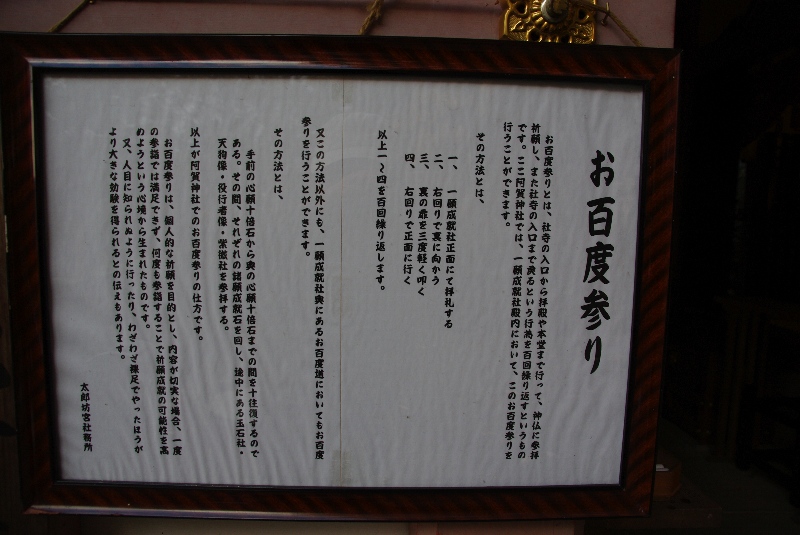 お百度参り
お百度参りとは、社寺の入口から拝殿や本堂まで行って、神仏に参拝
祈願し、また社寺の入口まで戻るという行為を百回繰り返すというもの
です。ここ阿賀神社では、一願成就社殿内において、このお百度参りを
行うことができます。
その方法とは、
一、一願成就社正面にて拝礼する
二、右回りで裏に向かう
三、裏の扉を三度軽く叩く
四、右回りで正面に行く
以上一～四を百回繰り返します。
又この方法以外にも、一願成就社奥にあるお百度道においてもお百度
参りを行うことができます。
その方法とは、
手前の心願十倍石から奥の心願十倍石までの間を十往復するので
ある。その間、それぞれの諸願成就石を回し、途中にある玉石社・
天狗像・役行者像・紫微社を参拝する。
以上が阿賀神社でのお百度参りの仕方です。
お百度参りは、個人的な祈願を目的とし、内容が切実な場合、一度
の参詣では満足できず、何度も参詣することで祈願成就の可能性を高
めようという心境から生まれたものです。
又、人目に知られぬように行ったり、わざわざ裸足でやったほうが
より大きな効験を得られるとの伝えもあります。
太郎坊宮社務所